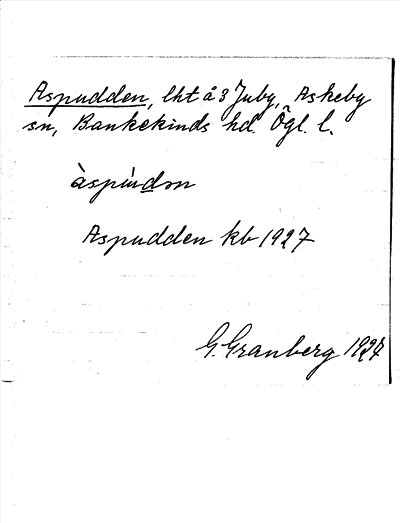 Aspudden, lht å 3 Juby, Askeby
sn, Bankekinds hd. Ögl. l.
àspu̇dən
Aspudden kb 1927
G. Granberg 1927